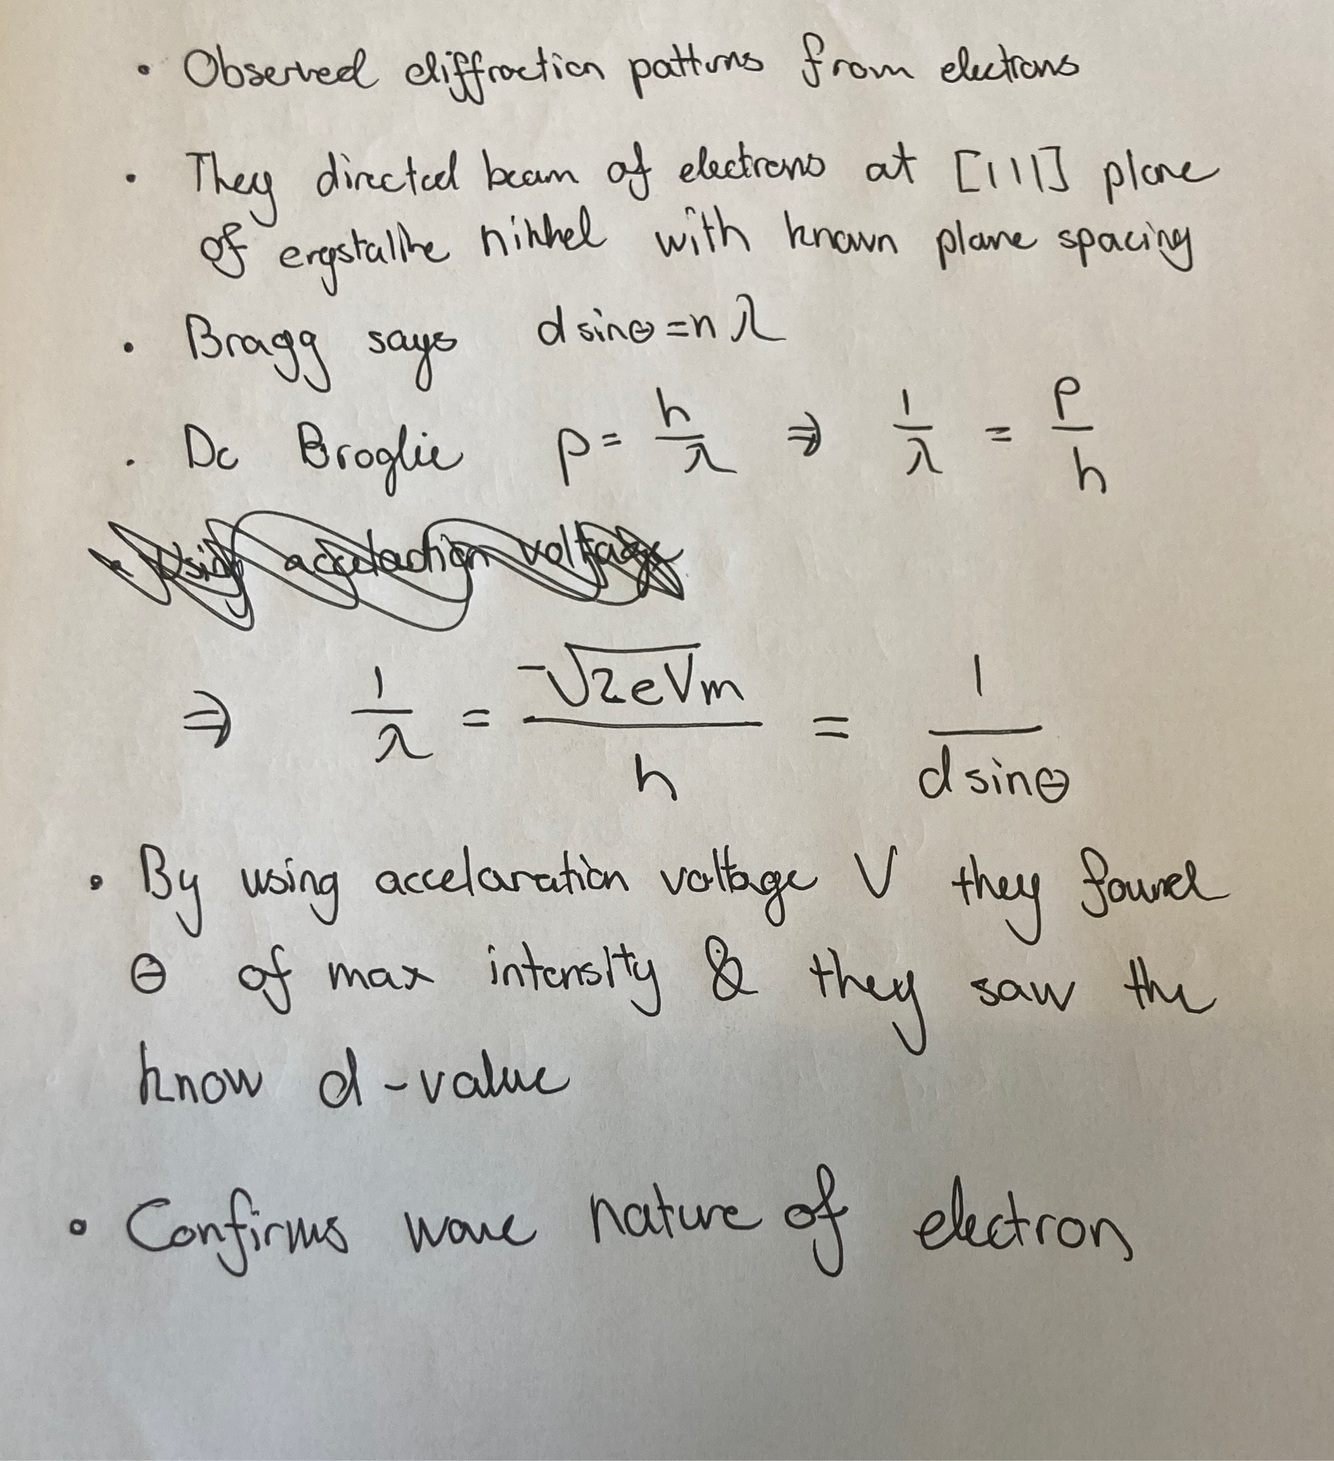 • Observed diffraction patterns from electrons
• They directed beam of electrons at [111] plane
of crystallne nikkel with known plane spacing
• Bragg says d sinθ = n λ
• De Broglie p = h/λ ⇒ 1/λ = p/h
• Using accelaction voltage
⇒ 1/λ = -√2eVm / h = 1 / d sinθ
• By using accelaration voltage V they found
θ of max intensity & they saw the
know d-value
• Confirms wave nature of electron